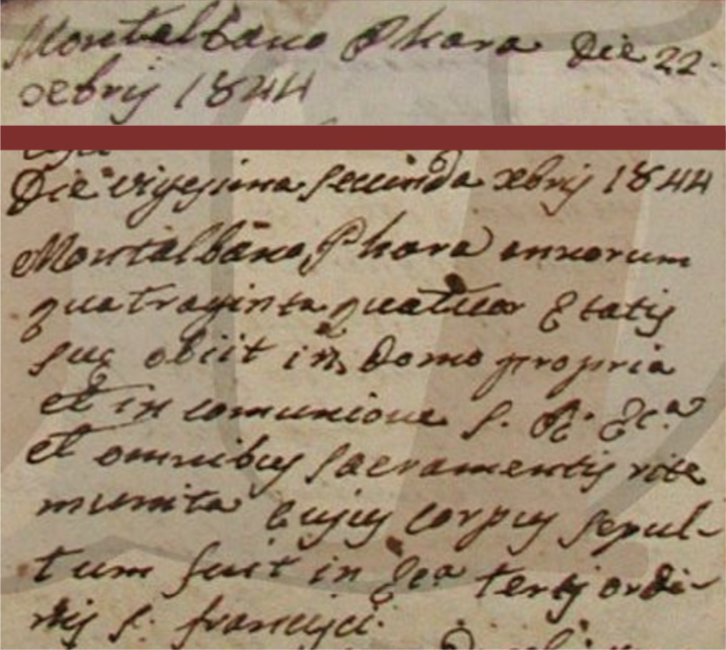 Montalbano Phara Die 22
xebrij 1844
Die vigesima secunda xebrij 1844
Montalbano Phara annorum
quatraginta quatuor Etatis
sue obiit in domo propria
et in comunione S. R. Ec.a
et omnibus sacramentis rite
munita Cujus corpus sepul-
tum fuit in Ec.a tertij ordi-
nis S. francisci.